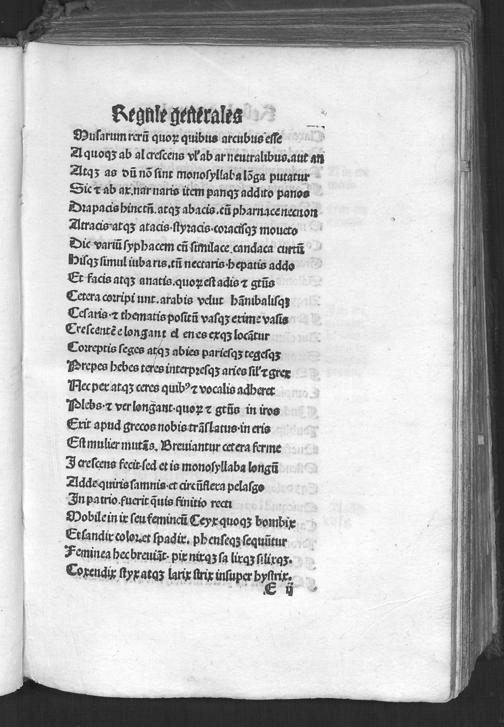 Regule generales
Musarum rerū quoꝝ quibus arcubus esse
A quoqꝫ ab al crescens vl' ab ar neutralibus. aut an
Atqꝫ as dū nō sint monosyllaba lōga putatur
Sic ⁊ ab ar, nar naris item panqꝫ addito panos
Drapacis hinc tū. atqꝫ abacis. cū pharnace necnon
Altracis atqꝫ atacis. styracis. coracisqꝫ moueto
Dic variū syphacem cū similace, candaca curtū
Hisqꝫ simul iubaris, cū nectaris. hepatis addo
Et facis atqꝫ anatis. quoꝝ est adis ⁊ gtūs
Cetera corripiunt. arabis velut hānibalisqꝫ
Cesaris. ⁊ thematis positū vasqꝫ exime vasis
Crescentē e longant el en es exqꝫ locātur
Correptis seges atqꝫ abies pariesqꝫ tegesqꝫ
Prepes hebes teres interpresqꝫ aries sil' ⁊ grex
Nec per atqꝫ ceres quibꝰ ⁊ vocalis adheret
Plebs. ⁊ ver longant. quoꝝ ⁊ gtūs in iros
Exit apud grecos nobis trāslatus in eris
Est mulier mutās, Breviantur cetera ferme
I crescens fecit. sed et is monosyllaba longū
Adde. quiris samnis. et circūflexa pelasgo
In patrio. fuerit q̄uis finitio recti
Mobile in ix seu femineū Ceyx quoqꝫ bombix
Et sandix color. et spadix, phenseqꝫ sequūtur
Feminea hec breviāt. pix nixqꝫ salixqꝫ silixqꝫ.
Coxendix styx atqꝫ larix strix insuper hystrix.
E ij